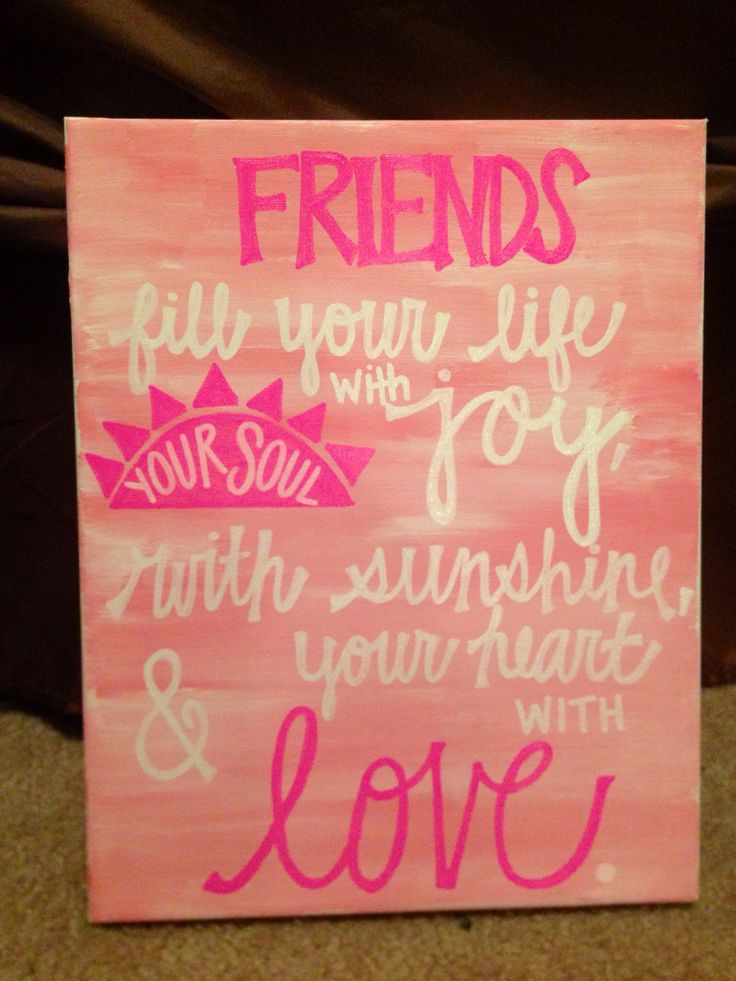 FRIENDS
fill your life
with joy,
YOUR SOUL
with sunshine,
& your heart
WITH
love.